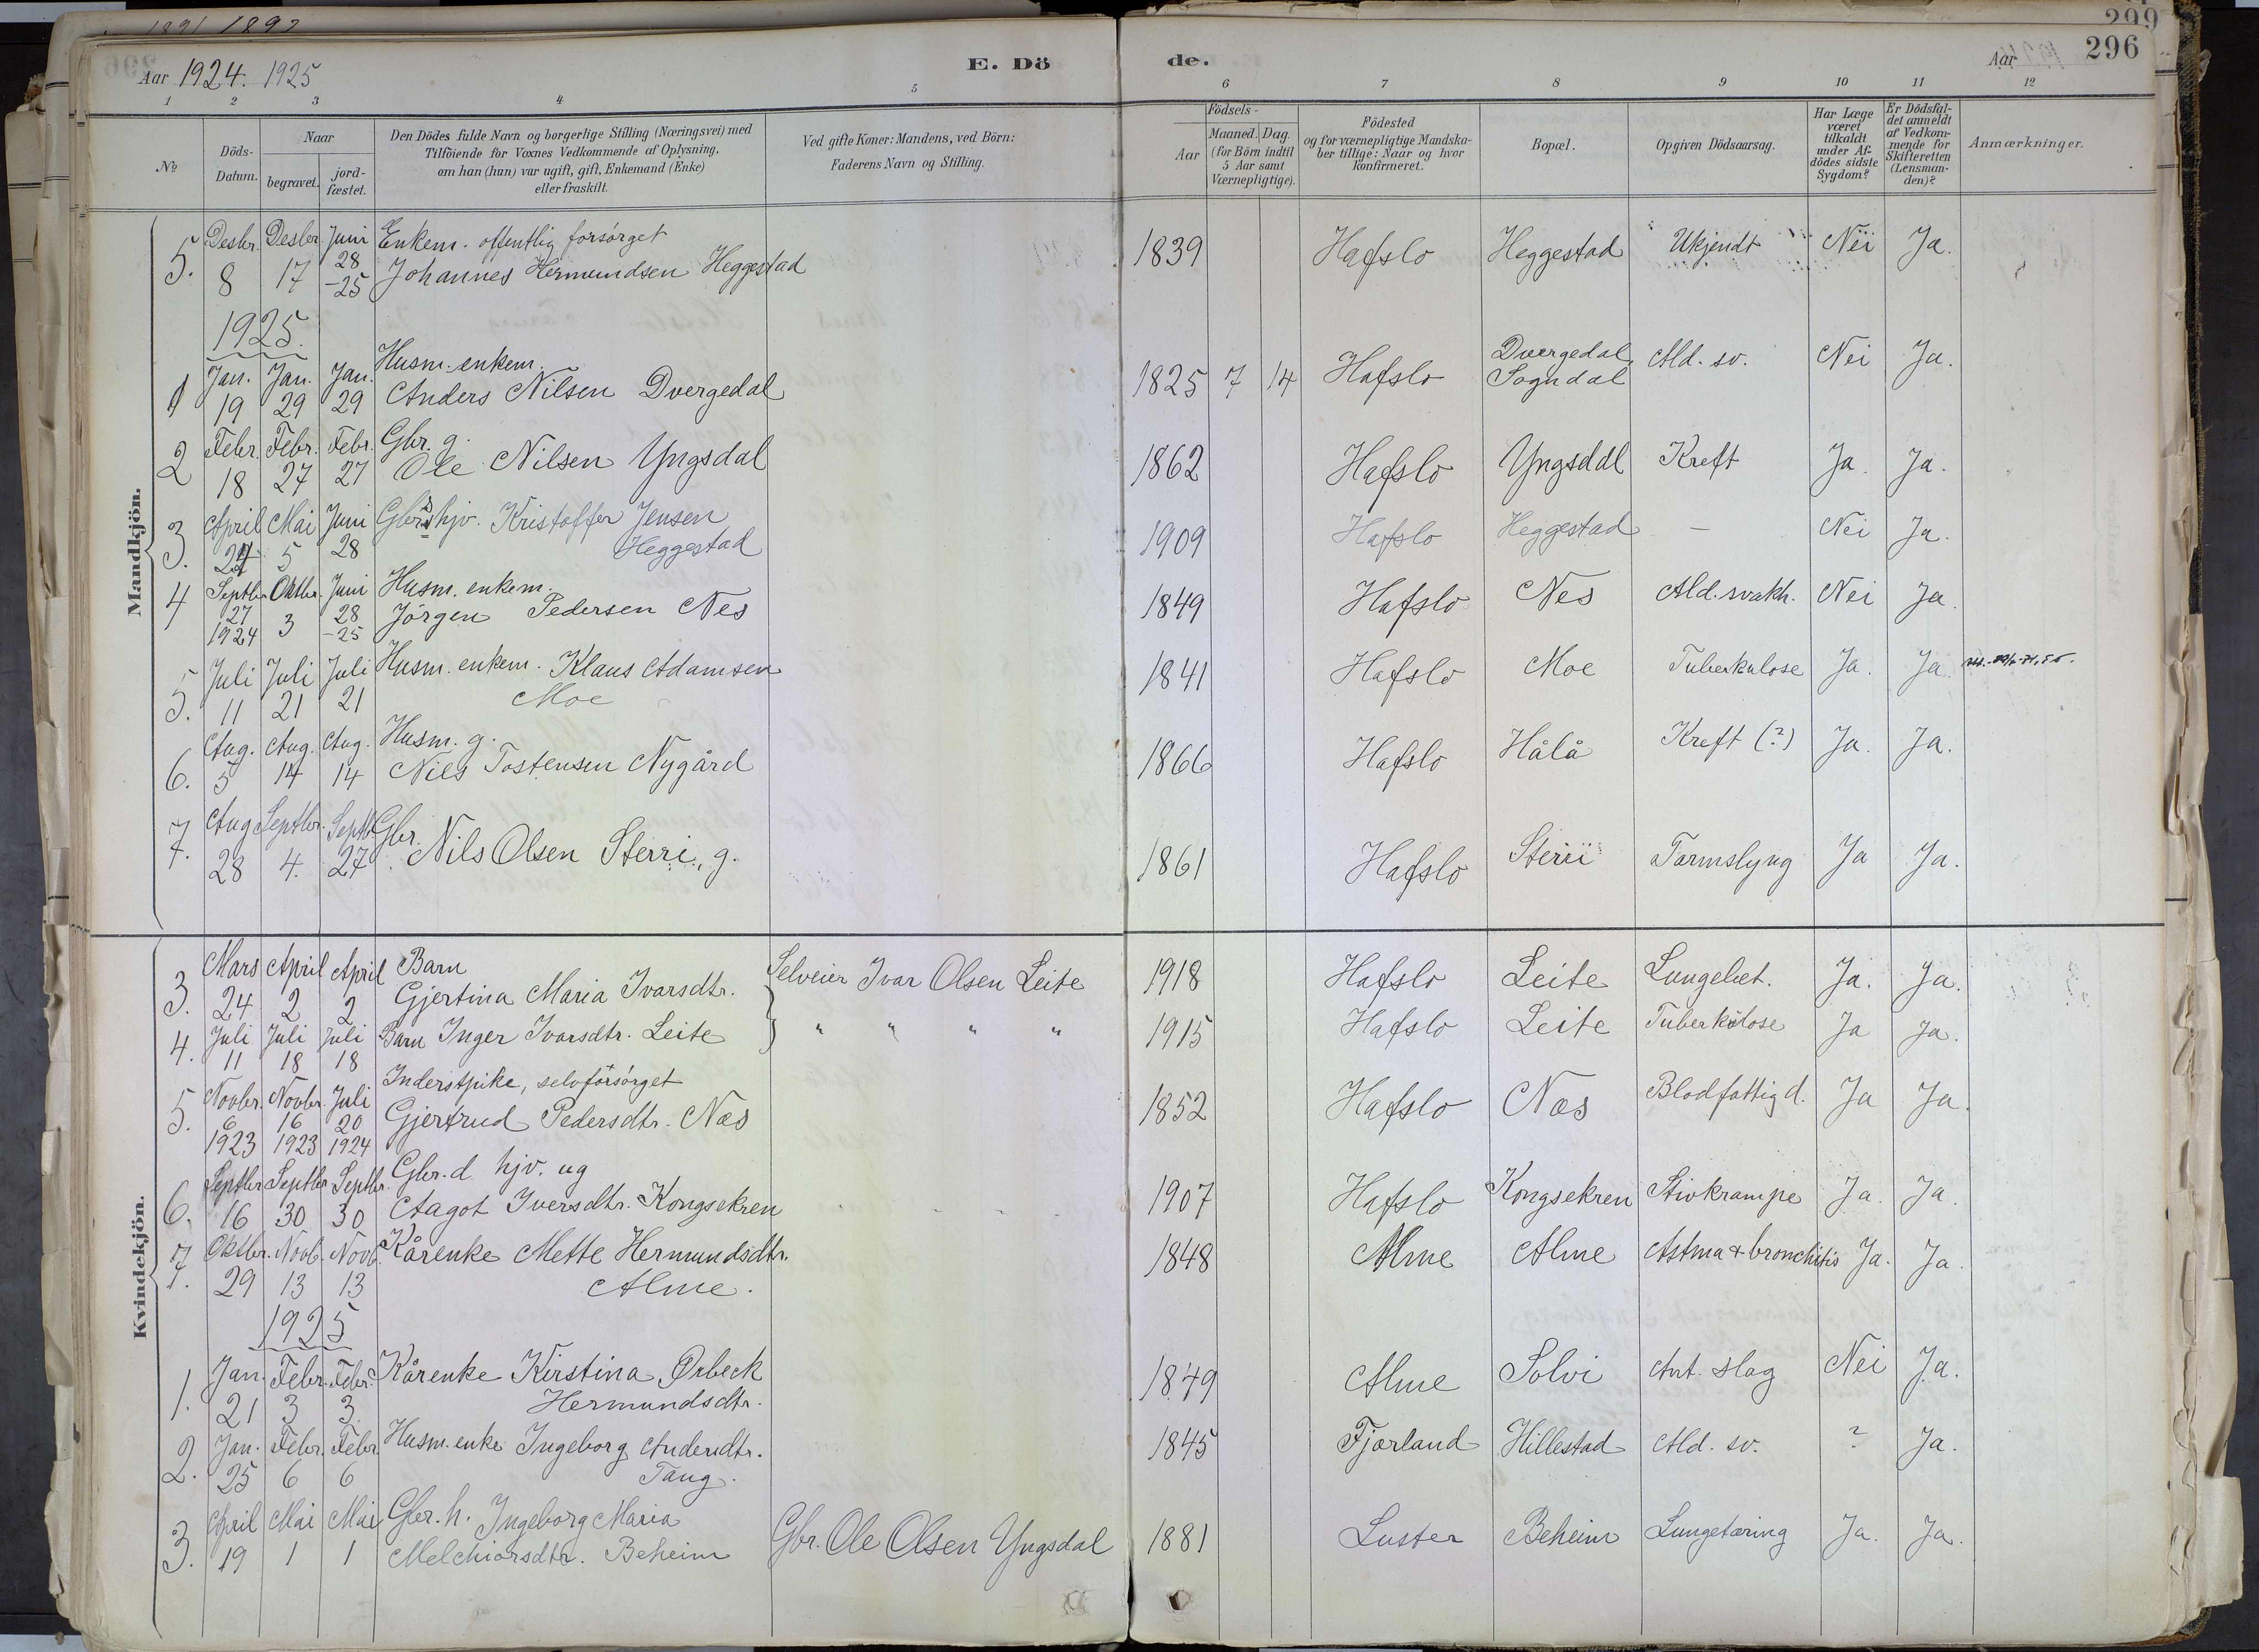 1891 1892
299
296
Aar 1924. 1925
E. Dö
de.
Aar
1 2 3 4 5 6 7 8 9 10 11 12
№
Döds-Datum.
Naar
begravet.
jord-fæstet.
Den Dödes fulde Navn og borgerlige Stilling (Næringsvei) med
Tilföiende for Voxnes Vedkommende af Oplysning,
om han (hun) var ugift, gift, Enkemand (Enke)
eller fraskilt.
Ved gifte Koner: Mandens, ved Börn:
Faderens Navn og Stilling.
Födsels-
Aar
Maaned. Dag.
(for Börn indtil
5 Aar samt
Værnepligtige).
Födested
og for værnepligtige Mandska-
ber tillige: Naar og hvor
konfirmeret.
Bopæl.
Opgiven Dödsaarsag.
Har Læge
været
tilkaldt
under Af-
dödes sidste
Sygdom?
Er Dödsfal-
det anmeldt
af Vedkom-
mende for
Skifteretten
(Lensman-
den)?
Anmærkninger.
Mandkjön.
5. Desbr. 8 Desbr. 17 Juni 28 -25 Enkem. offentlig forsörget
Johannes Hermundsen Heggestad 1839 Hafslo Heggestad Ukjendt Nei Ja.
1925.
1 Jan. 19 Jan. 29 Jan. 29 Husm. enkem.
Anders Nilsen Dvergedal 1825 7 14 Hafslo Dvergedal, Sogndal Ald. sv. Nei Ja.
2 Febr. 18 Febr. 27 Febr. 27 Gbr. g.
Ole Nilsen Yngsdal 1862 Hafslo Yngsdal Kreft Ja. Ja.
3. April 24 Mai 5 Juni 28 Gbrs hjv. Kristoffer Jensen
Heggestad 1909 Hafslo Heggestad — Nei Ja.
4 Septbr. 27 1924 Oktbr. 3 Juni 28 -25 Husm. enkem.
Jörgen Pedersen Nes 1849 Hafslo Nes Ald. svakh. Nei Ja.
5. Juli 11 Juli 21 Juli 21 Husm. enkem. Klaus Adamsen
Moe 1841 Hafslo Moe Tuberkulose Ja. Ja.
6. Aug. 5 Aug. 14 Aug. 14 Husm. g.
Nils Tostensen Nygård 1866 Hafslo Hålå Kreft (?) Ja. Ja.
7. Aug 28 Septbr. 4. Septb. 27 Gbr.
Nils Olsen Sterri, g. 1861 Hafslo Sterri Tarmslyng Ja Ja.
Kvindekjön.
3. Mars 24 April 2 April 2 Barn
Gjertina Maria Ivarsdtr. Selveier Ivar Olsen Leite 1918 Hafslo Leite Lungebet. Ja. Ja.
4. Juli 11 Juli 18 Juli 18 Barn Inger Ivarsdtr. Leite " " " " 1915 Hafslo Leite Tuberkulose Ja Ja.
5. Novbr. 6 1923 Novbr. 16 1923 Juli 20 1924 Inderstpike, selvforsörget
Gjertrud Pedersdtr. Næs 1852 Hafslo Næs Blodfattigd. Ja Ja.
6. Septbr 16 Septbr 30 Septbr. 30 Gbr. d. hjv. ug
Aagot Iversdtr. Kongsekren 1907 Hafslo Kongsekren Stivkrampe Ja. Ja.
7. Oktbr. 29 Novb. 13 Novb. 13 Kårenke Mette Hermundsdtr.
Alme. 1848 Alme Alme Astma + bronchitis Ja. Ja.
1925
1. Jan. 21 Febr. 3 Febr. 3 Kårenke Kirstina Ørbeck
Hermundsdtr. 1849 Alme Solvi Ant. slag Nei Ja.
2. Jan. 25 Febr. 6 Febr 6 Husm. enke Ingeborg Andersdtr.
Tang. 1845 Fjærland Hillestad Ald. sv. ? Ja.
3. April 19 Mai 1 Mai 1 Gbr. h. Ingeborg Maria
Melchiorsdtr. Beheim Gbr. Ole Olsen Yngsdal 1881 Luster Beheim Lungetæring Ja. Ja.